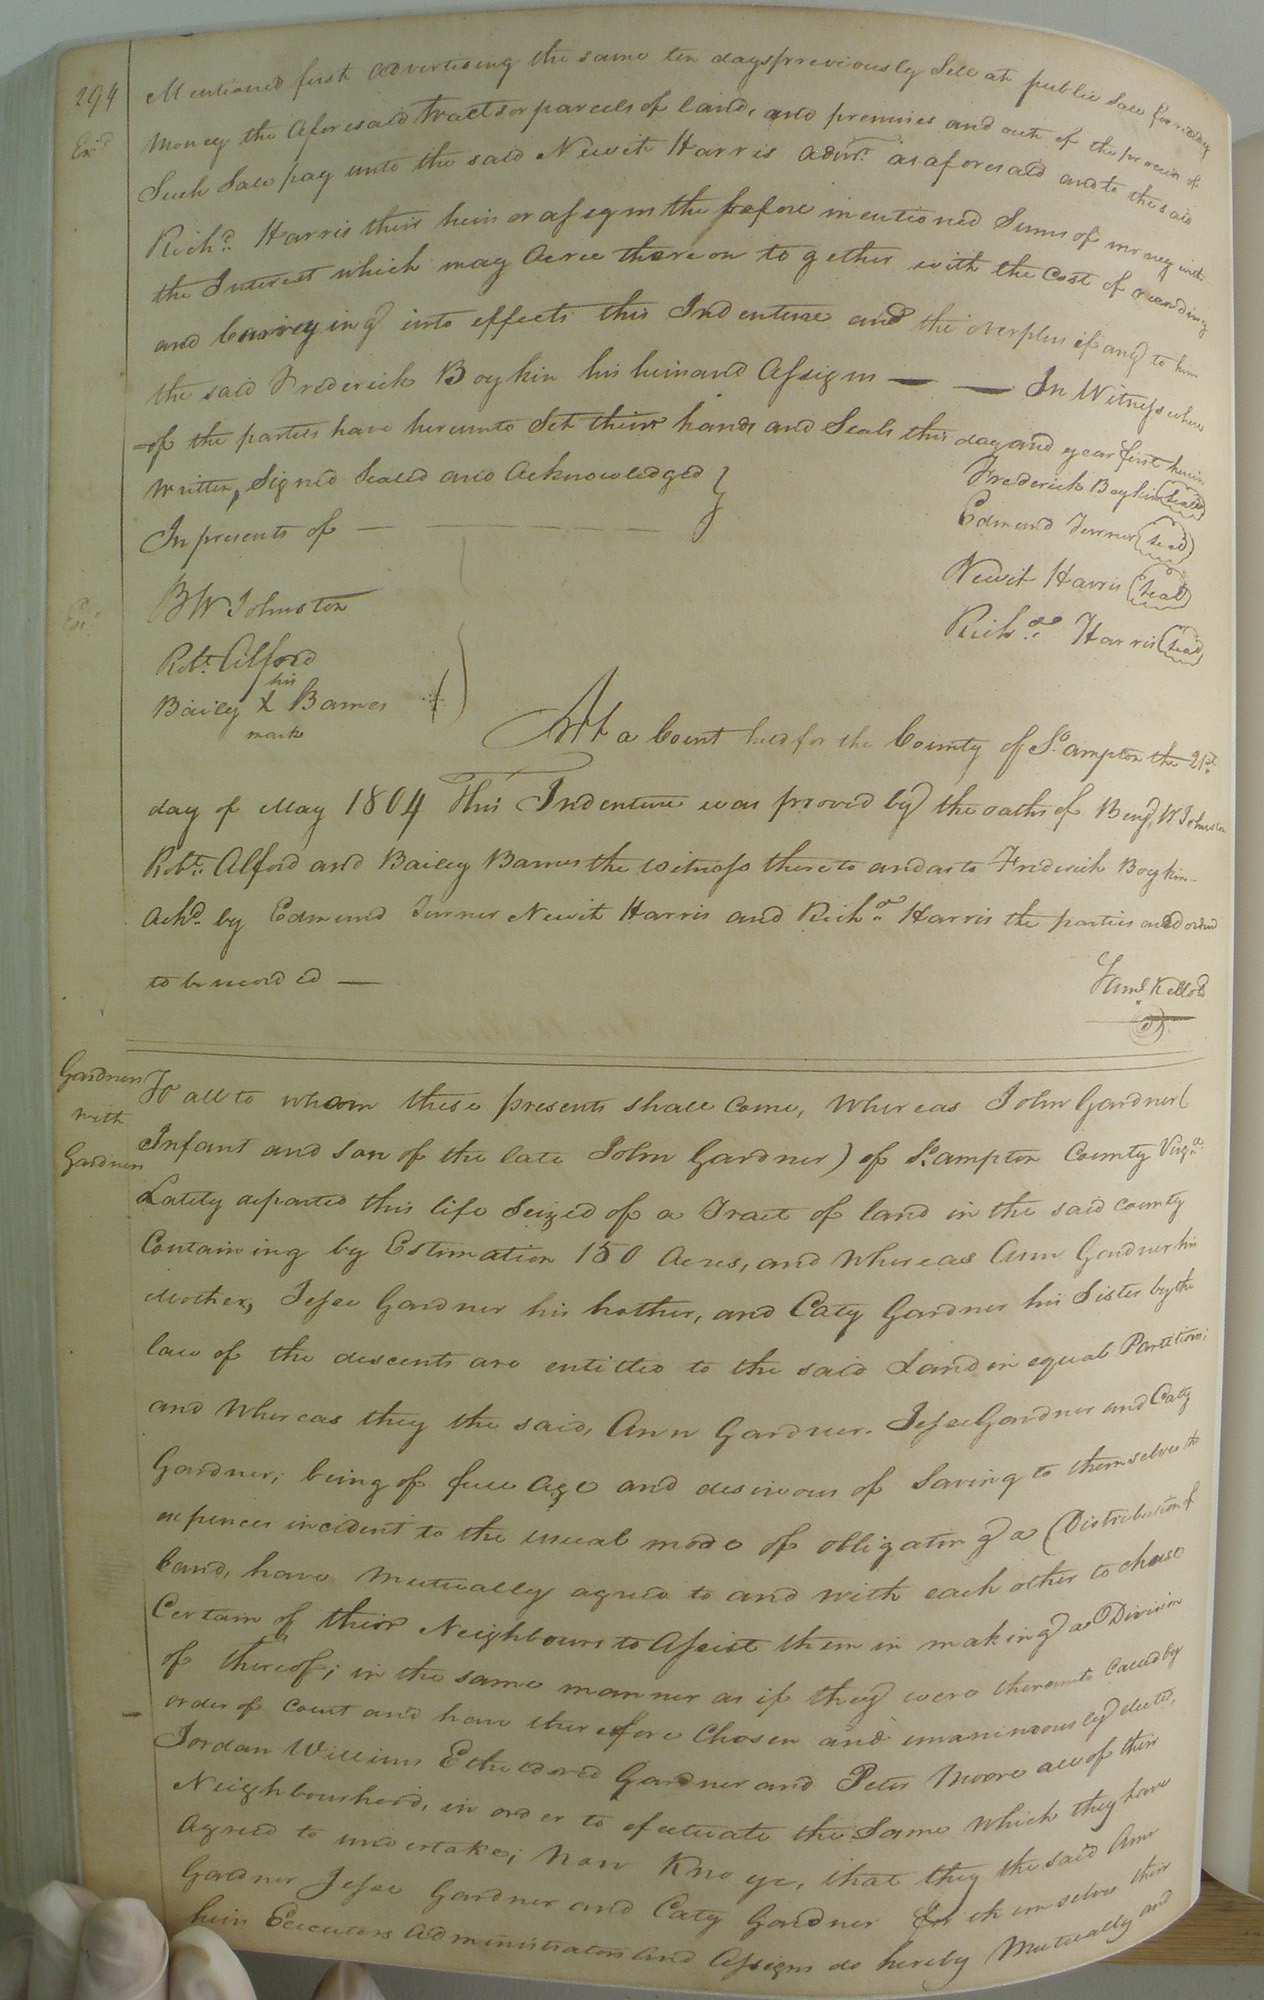 294
Exd
Mentioned first advertising the same ten days previously Sell at public Sale for ready
money the aforesaid tracts or parcels of land, and premises and out of the proceeds of
Such Sale pay unto the said Newit Harris admr. as aforesaid and to the said
Richd. Harris their heirs or assigns the before mentioned Sums of money with
the Interest which may Acrue thereon together with the Cost of recording
and Carreying into effects this Indenture and the overplus if any to him
the said Frederick Boykin his heirs and Assigns — — In Witness where
=of the parties have hereunto Set their hands and Seals this day and year first herein
Written, Signed Sealed and Acknowledged }
In presents of —
Frederick Boykin (Seal)
Edmund Turner (Seal)
Newit Harris (Seal)
Richd. Harris (Seal)
BW Johnston
Robt. Alford
his
Bailey X Barnes
mark
At a Court held for the County of So.ampton the 21st.
day of May 1804 This Indenture was proved by the oaths of Benj. W Johnston
Robt. Alford and Bailey Barnes the witness thereto and as to Frederick Boykin
Ackd. by Edmund Turner Newit Harris and Richd. Harris the parties and ordered
to be recorded —
Saml Kello
Gardner
with
Gardner
To all to whom these presents shall come, Whereas John Gardner (
Infant and Son of the late John Gardner) of So.ampton County Virga.
Lately departed this life Seized of a Tract of land in the said County
Containing by Estimation 150 Acres, and Whereas Ann Gardner his
Mother, Jesse Gardner his brother, and Caty Gardner his Sister by the
law of the descents are entitled to the said Land in equal Partitions;
and Whereas they the said, Ann Gardner. Jesse Gardner and Caty
Gardner; being of full Age and desireous of Saving to themselves the
expences incident to the usual mode of obligating a Distribution of
land, have Mutually agreed to and with each other to chuse
Certain of their Neighbours to Assist them in making a Division
of thereof; in the same manner as if they were thereunto Called by
order of Court and have therefore Chosen and unanimously elected,
Jordan Williams Etheldred Gardner and Peter Moore all of their
Neighbourhood, in order to efectuate the Same Which they have
Agreed to undertake; Now Kno ye, that they the said Ann
Gardner Jesse Gardner and Caty Gardner For themselves their
heirs Executors Administrators and Assigns do hereby Mutually and